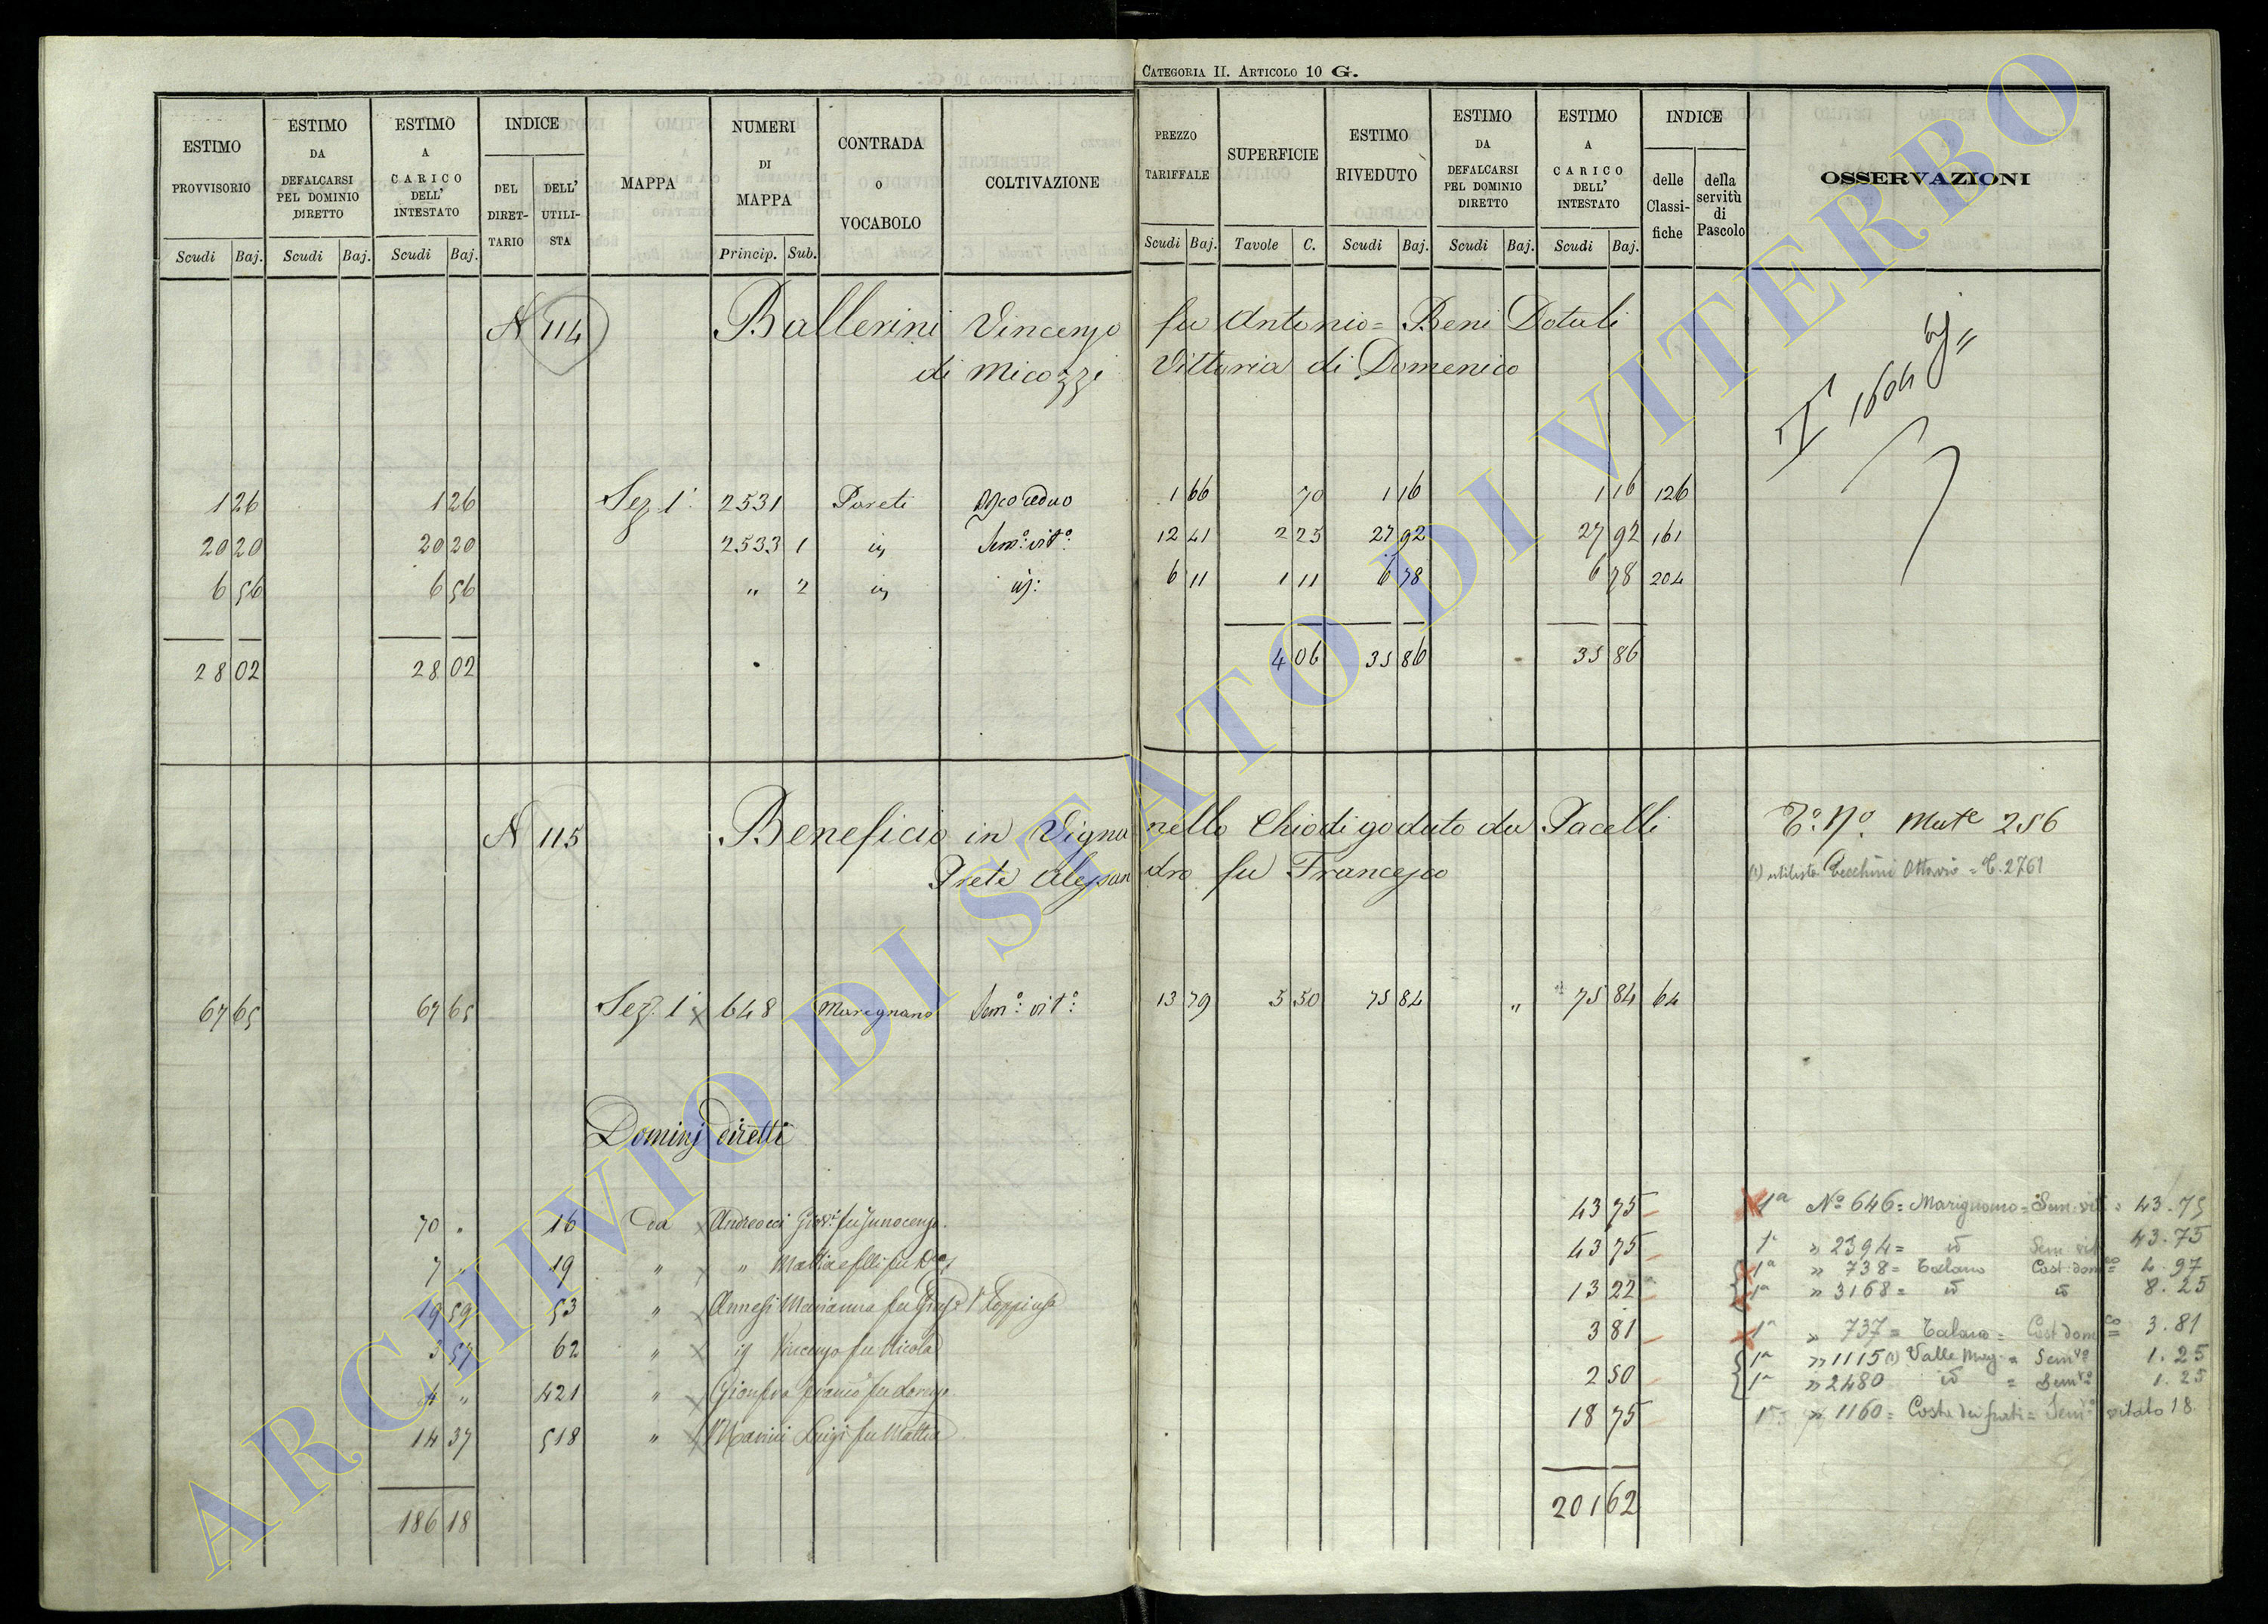 CATEGORIA II. ARTICOLO 10 G.
ESTIMO PROVVISORIO
ESTIMO DA DEFALCARSI PEL DOMINIO DIRETTO
ESTIMO A CARICO DELL' INTESTATO
INDICE
DEL DIRETTARIO
DELL' UTILISTA
MAPPA
NUMERI DI MAPPA
CONTRADA O VOCABOLO
COLTIVAZIONE
PREZZO TARIFFALE
SUPERFICIE
ESTIMO RIVEDUTO
ESTIMO DA DEFALCARSI PEL DOMINIO DIRETTO
ESTIMO A CARICO DELL' INTESTATO
INDICE
delle Classifiche
della servitù di Pascolo
OSSERVAZIONI
Scudi Baj. Scudi Baj. Scudi Baj. Princip. Sub. Scudi Baj. Tavole C. Scudi Baj. Scudi Baj. Scudi Baj.
N 114 Ballerini Vincenzo fu Antonio = Beni Dotali
di Micozzi Vittoria di Domenico
1604
1 26 1 26 Sez. 1ª 2531 Pareti Bosco ceduo 1 66 70 1 16 1 16 126
20 20 20 20 2533 1 id Semo. vito. 12 41 2 25 27 92 27 92 161
6 56 6 56 " 2 id id: 6 11 1 11 6 78 6 78 204
28 02 28 02 4 06 35 86 35 86
N 115 Beneficio in Vignanello Chiodi goduto da Pacelli
Prete Alessandro fu Francesco
To. No. Mute 256
(1) utilista Cecchini Ottavio = C. 2761
67 65 67 65 Sez. 1ª x 648 Marignano Semo. vito. 13 79 5 50 75 84 " 75 84 64
Dominj diretti
70 " 16 Da x Andreocci Giovi. fu Innocenzo 43 75 x 1a No 646 = Marignano = Sem. vit = 43.75
7 " 19 " x " Mattia e flli fu 43 75 1a " 2394 = id Sem vit 43.75
1a " 738 = Talano Cast: domco = 4.97
19 59 53 " Annesi Marianna fu Gius. 13 22 1a " 3168 = id id 8.25
3 57 62 " x id Vincenzo fu Nicola 3 81 x 1a " 737 = Talano = Cast domco = 3.81
1a " 1115 (1) Valle Mag. = Semvo 1.25
4 " 421 " x fu Lorenzo 2 50 1a " 2480 id = Semvo 1.25
14 37 518 " x Mannini Luigi fu Mattia 18 75 1a " 1160 = Costa dei frati = Semo vitato 18
186 18 201 62
ARCHIVIO DI STATO DI VITERBO